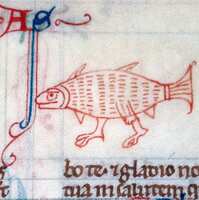 AS
bo te. ⁊ gladio no
tua in salutem q